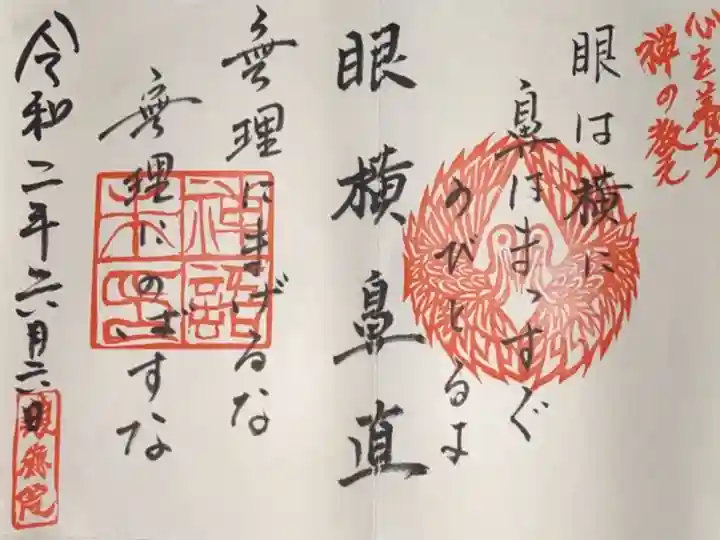 心を養う
禅の教え
眼は横に
鼻はまっすぐ
のびとるよ
眼横鼻直
無理にまげるな
無理にのばすな
禅語
朱印
令和二年六月六日